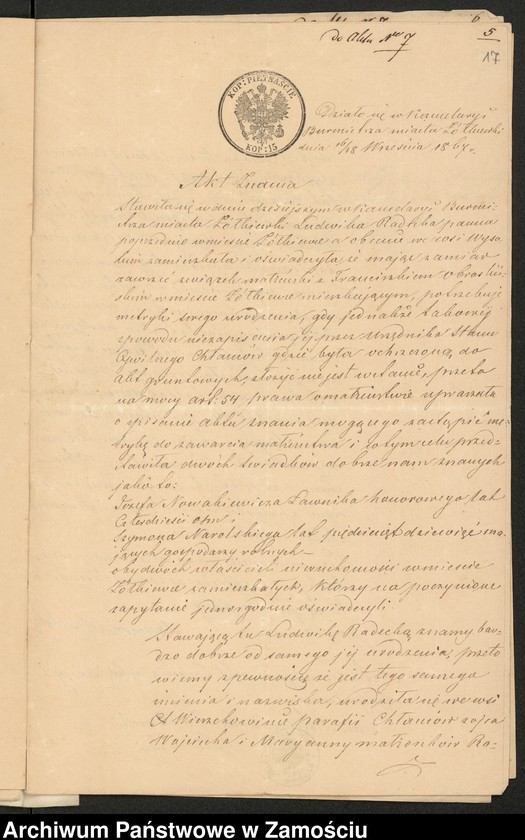 do Aktu Nro 7
5
17
KOP: PIĘTNAŚCIE
KOP: 15
Działo się w Kancelaryi
Burmistrza miasta Żółkiewki
dnia 6/18 Września 1864 r.
Akt Znania
Stawiła się w dniu dzisiejszym w Kancelaryi Burmi-
strza miasta Żółkiewki Ludwika Radecka panna
poprzednio w mieście Żółkiewce a obecnie we wsi Wyso-
kim zamieszkała i oświadczyła, iż mając zamiar
zawrzeć związek małżeński z Franciszkiem
w mieście Żółkiewce mieszkającym, potrzebuje
metryki swego urodzenia, gdy jednakże takowej
z powodu niezapisania jej przez Urzędnika Stanu
Cywilnego Chłaniów gdzie była ochrzczoną do
akt gruntowych, złożyć nie jest w stanie, przeto
na mocy art. 54 prawa o małżeństwie upraszała
o spisanie aktu znania mogącego zastąpić me-
trykę do zawarcia małżeństwa i w tym celu przed-
stawiła dwóch świadków dobrze nam znanych
jako to:
Józefa Nowakiewicza Ławnika honorowego lat
czterdzieści ośm i
Szymona Narolskiego lat pięćdziesiąt dziewięć ma-
jących gospodarzy rolnych
obydwóch właścicieli nieruchomości w mieście
Żółkiewce zamieszkałych, którzy na poczynione
zapytanie jednozgodnie oświadczyli
Stawającą tu Ludwikę Radecką znamy bar-
dzo dobrze od samego jej urodzenia, przeto
wiemy z pewnością że jest tego samego
imienia i nazwiska, urodziła się we wsi
Wierzchowinie parafii Chłaniów z ojca
Wojciecha i Maryanny małżonków Ra-
Archiwum Państwowe w Zamościu